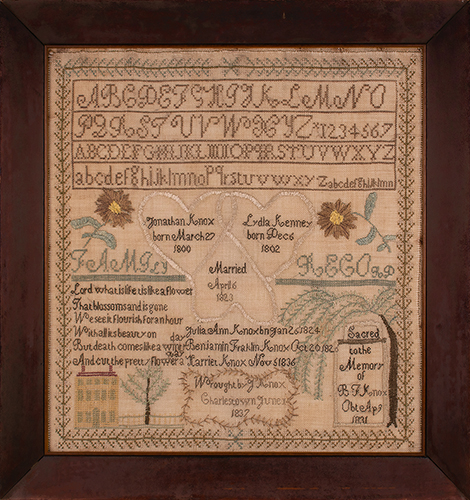 ABCDEFGHIJKLMNO
PQRSTUVWXYZ 1234567
ABCDEFGHIJKLMNOPQRSTUVWXYZ
abcdefghijklmnopqrstuvwxyz abcdefghijklmn
Jonathan Knox
born March 27
1800
Lydia Kenney
born Dec 6
1802
Married
April 6
1823
FAMILY RECORD
Lord what is life tis like a flower
That blossoms and is gone
We see it flourish for an hour
With all its beauty on
But death comes like a wintry day
And cut the pretty flower
Julia Ann Knox bn Jan 26 1824
Benjamin Franklin Knox Oct 20 182
Harriet Knox Nov 5 1836
Wrought by J Knox
Charlestown June 1
1837
Sacred
to the
Memory
of
B F Knox
Obt Ap 9
1831